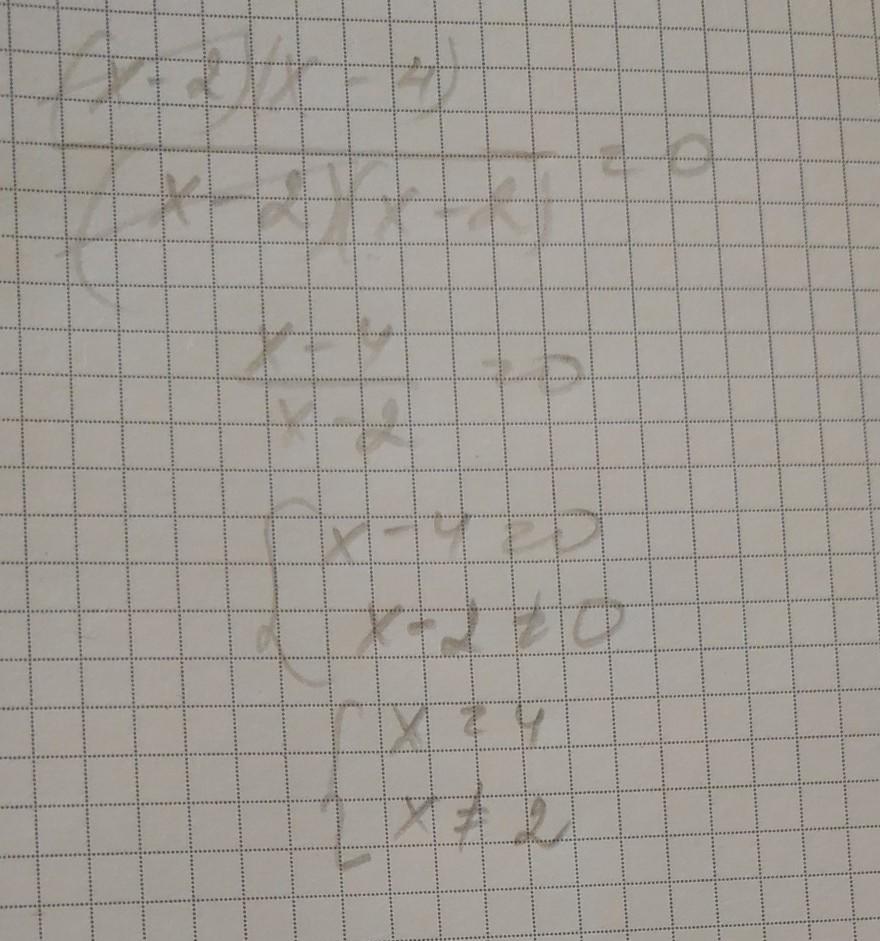 (x-2)(x-4)
/(x-2)(x-2) = 0
x-4
/x-2 = 0
{ x-4 = 0
x-2 ≠ 0
{ x = 4
x ≠ 2